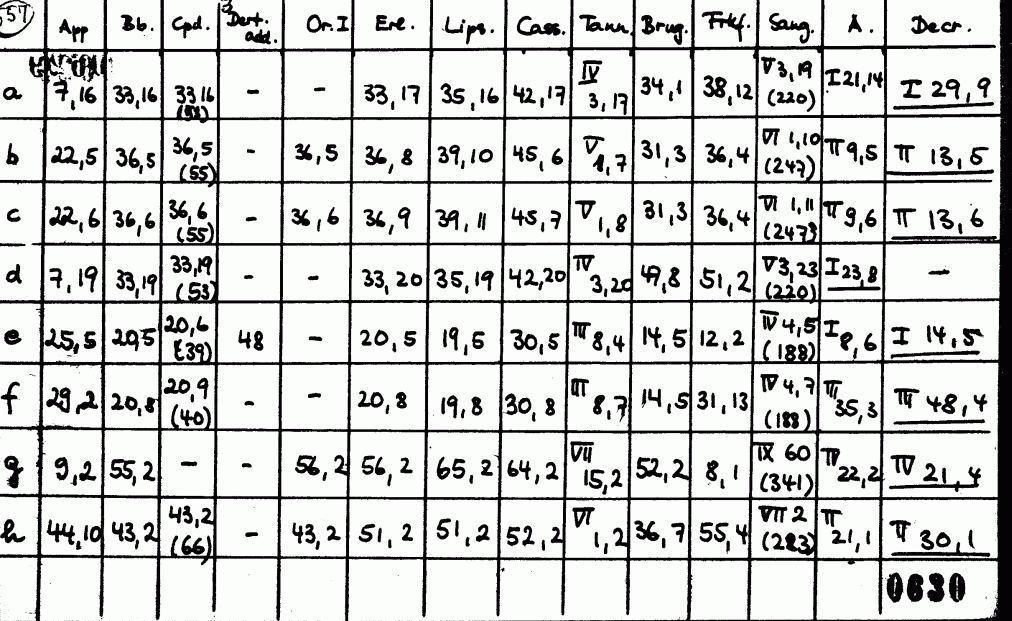 57 App Bb. Cpd. Dert. add. Or.I Erl. Lips. Cass. Tann. Brug. Frkf. Sang. A. Decr.
a 7,16 33,16 33,16 (53) - - 33,17 35,16 42,17 IV 3,17 34,1 38,12 V 3,19 (220) I 21,14 I 29,9
b 22,5 36,5 36,5 (55) - 36,5 36,8 39,10 45,6 V 1,7 31,3 36,4 VI 1,10 (247) II 9,5 II 13,5
c 22,6 36,6 36,6 (55) - 36,6 36,9 39,11 45,7 V 1,8 31,3 36,4 VI 1,11 (247) II 9,6 II 13,6
d 7,19 33,19 33,19 (53) - - 33,20 35,19 42,20 IV 3,20 49,8 51,2 V 3,23 (220) I 23,8 -
e 25,5 20,5 20,6 (39) 48 - 20,5 19,5 30,5 III 8,4 14,5 12,2 IV 4,5 (188) I 8,6 I 14,5
f 29,2 20,8 20,9 (40) - - 20,8 19,8 30,8 III 8,7 14,5 31,13 IV 4,7 (188) III 35,3 III 48,4
g 9,2 55,2 - - 56,2 56,2 65,2 64,2 VII 15,2 52,2 8,1 IX 60 (341) IV 22,2 IV 21,4
h 44,10 43,2 43,2 (66) - 43,2 51,2 51,2 52,2 VI 1,2 36,7 55,4 VII 2 (283) II 21,1 II 30,1
0630